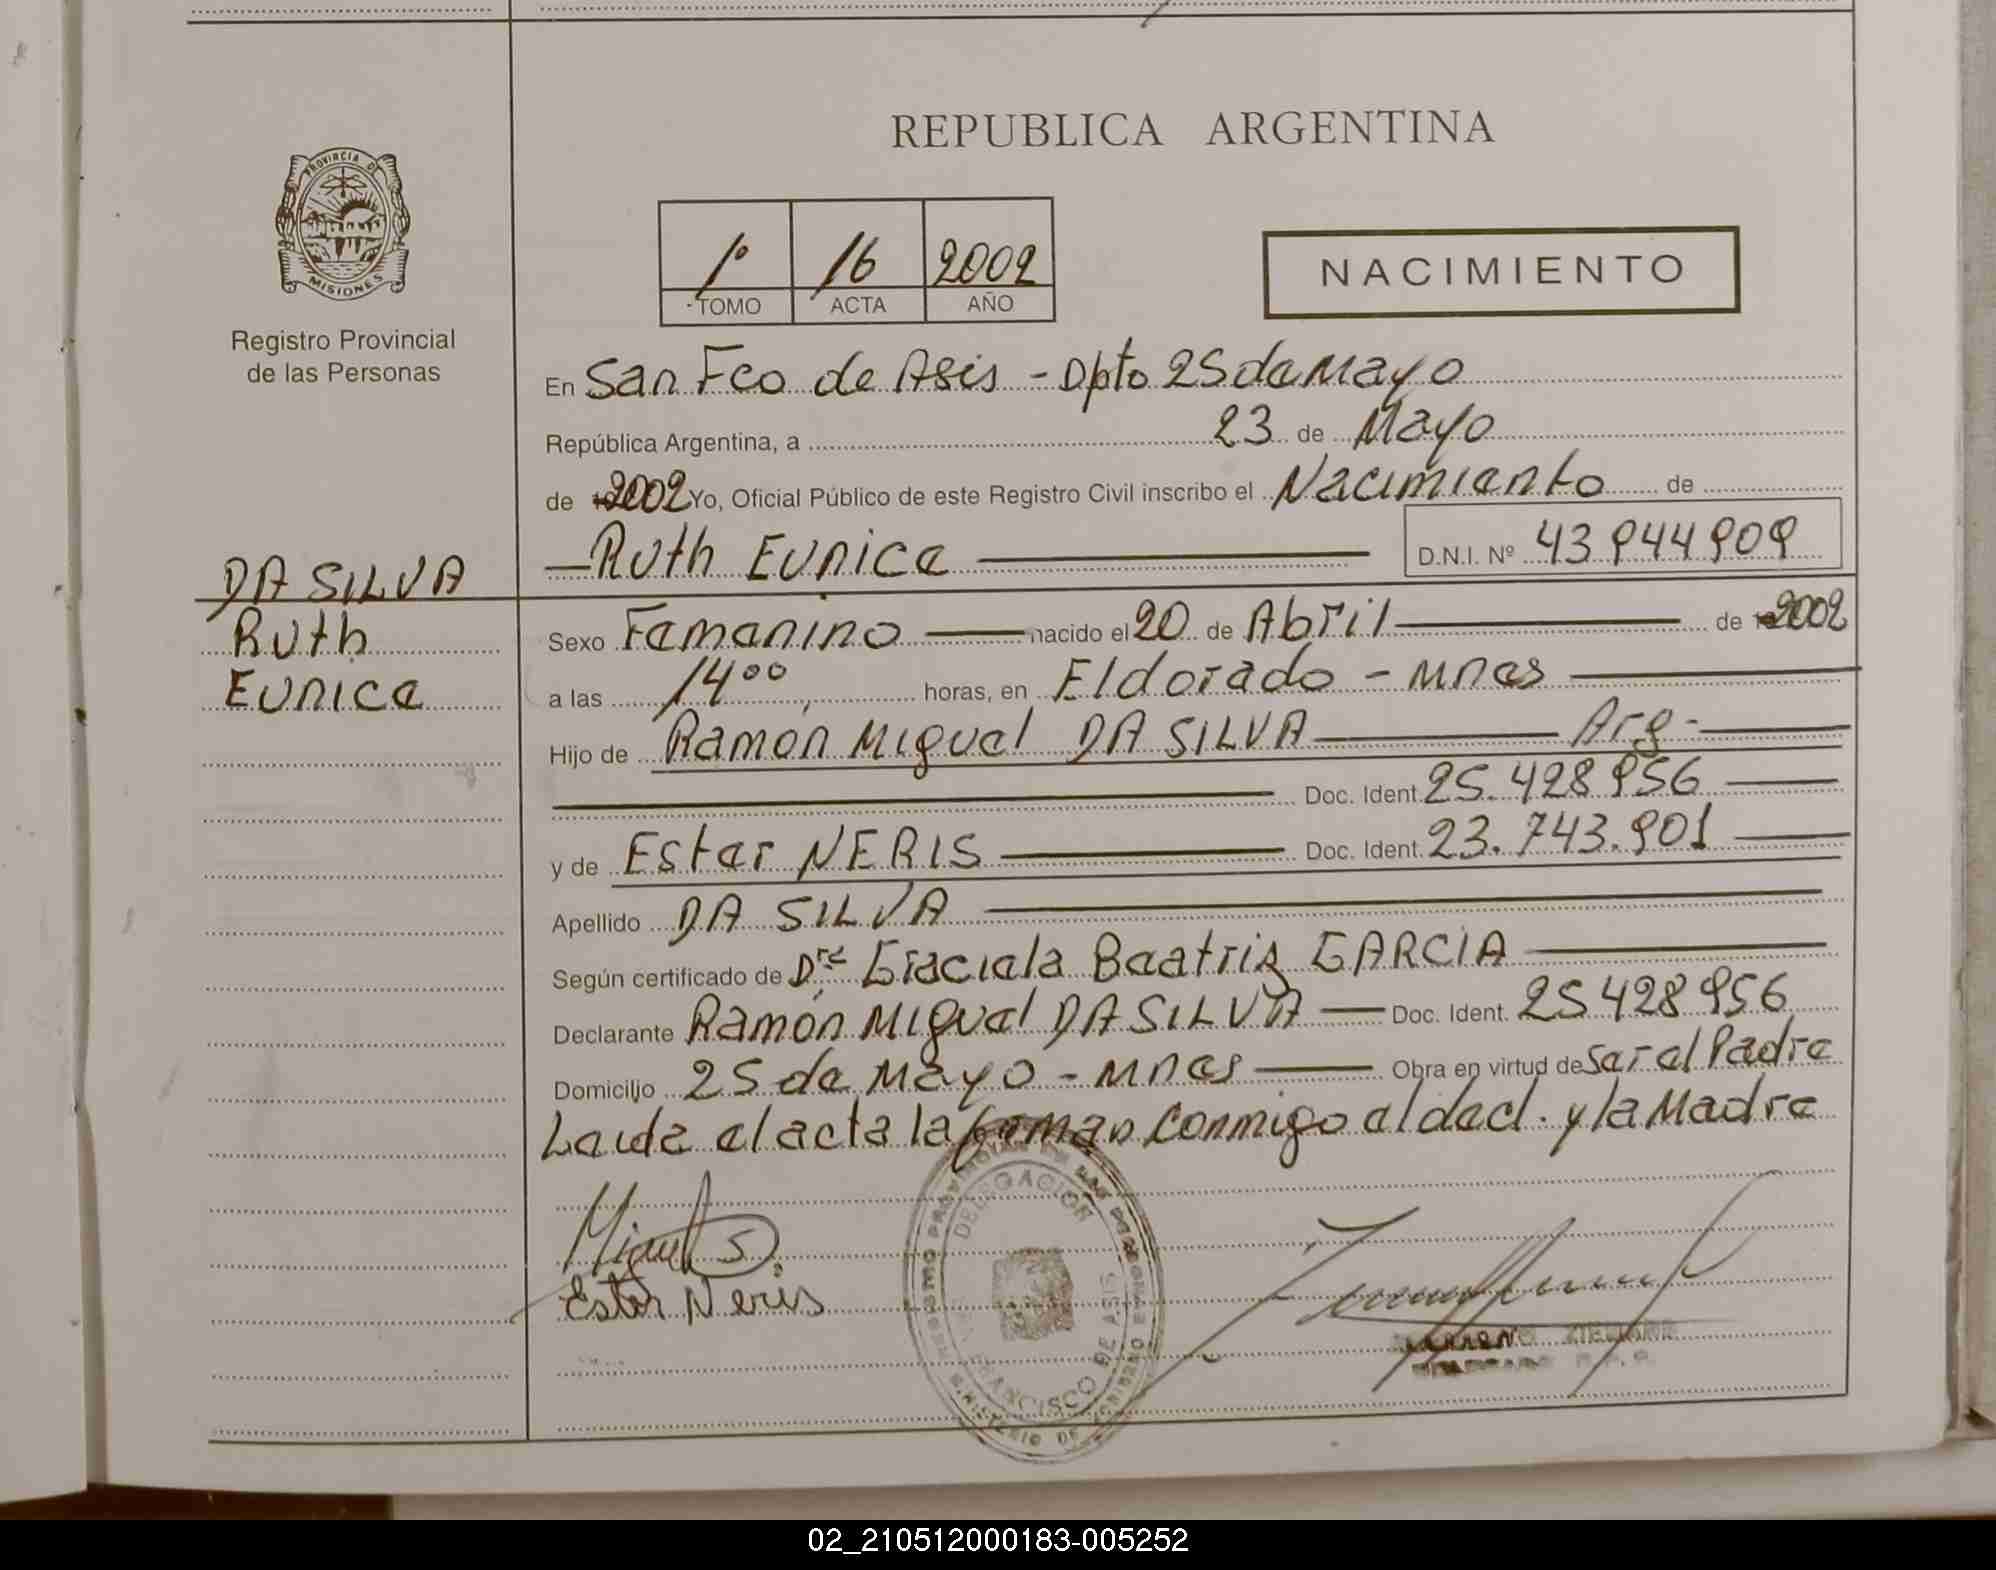 REPUBLICA ARGENTINA
PROVINCIA DE
MISIONES
Registro Provincial
de las Personas
1º 16 2002
TOMO ACTA AÑO
NACIMIENTO
En San Fco de Asis - Dpto 25 de Mayo
República Argentina, a 23 de Mayo
de 2002 Yo, Oficial Público de este Registro Civil inscribo el Nacimiento de
Ruth Eunice D.N.I. Nº 43944909
DA SILVA
Ruth
Eunice
Sexo Femenino nacido el 20 de Abril de 2002
a las 14⁰⁰ horas, en Eldorado - Mnes
Hijo de Ramón Miguel DA SILVA Arg.-
Doc. Ident. 25.428.956
y de Ester NERIS Doc. Ident. 23.743.901
Apellido DA SILVA
Según certificado de Drª Graciela Beatriz GARCIA
Declarante Ramón Miguel DA SILVA Doc. Ident. 25428956
Domicilio 25 de Mayo - Mnes Obra en virtud de Ser el Padre
Leida el acta la firman conmigo el decl. y la Madre
Miguel S.
Ester Neris
DELEGACION
FRANCISCO DE ASIS
MINISTERIO DE GOBIERNO
02_210512000183-005252